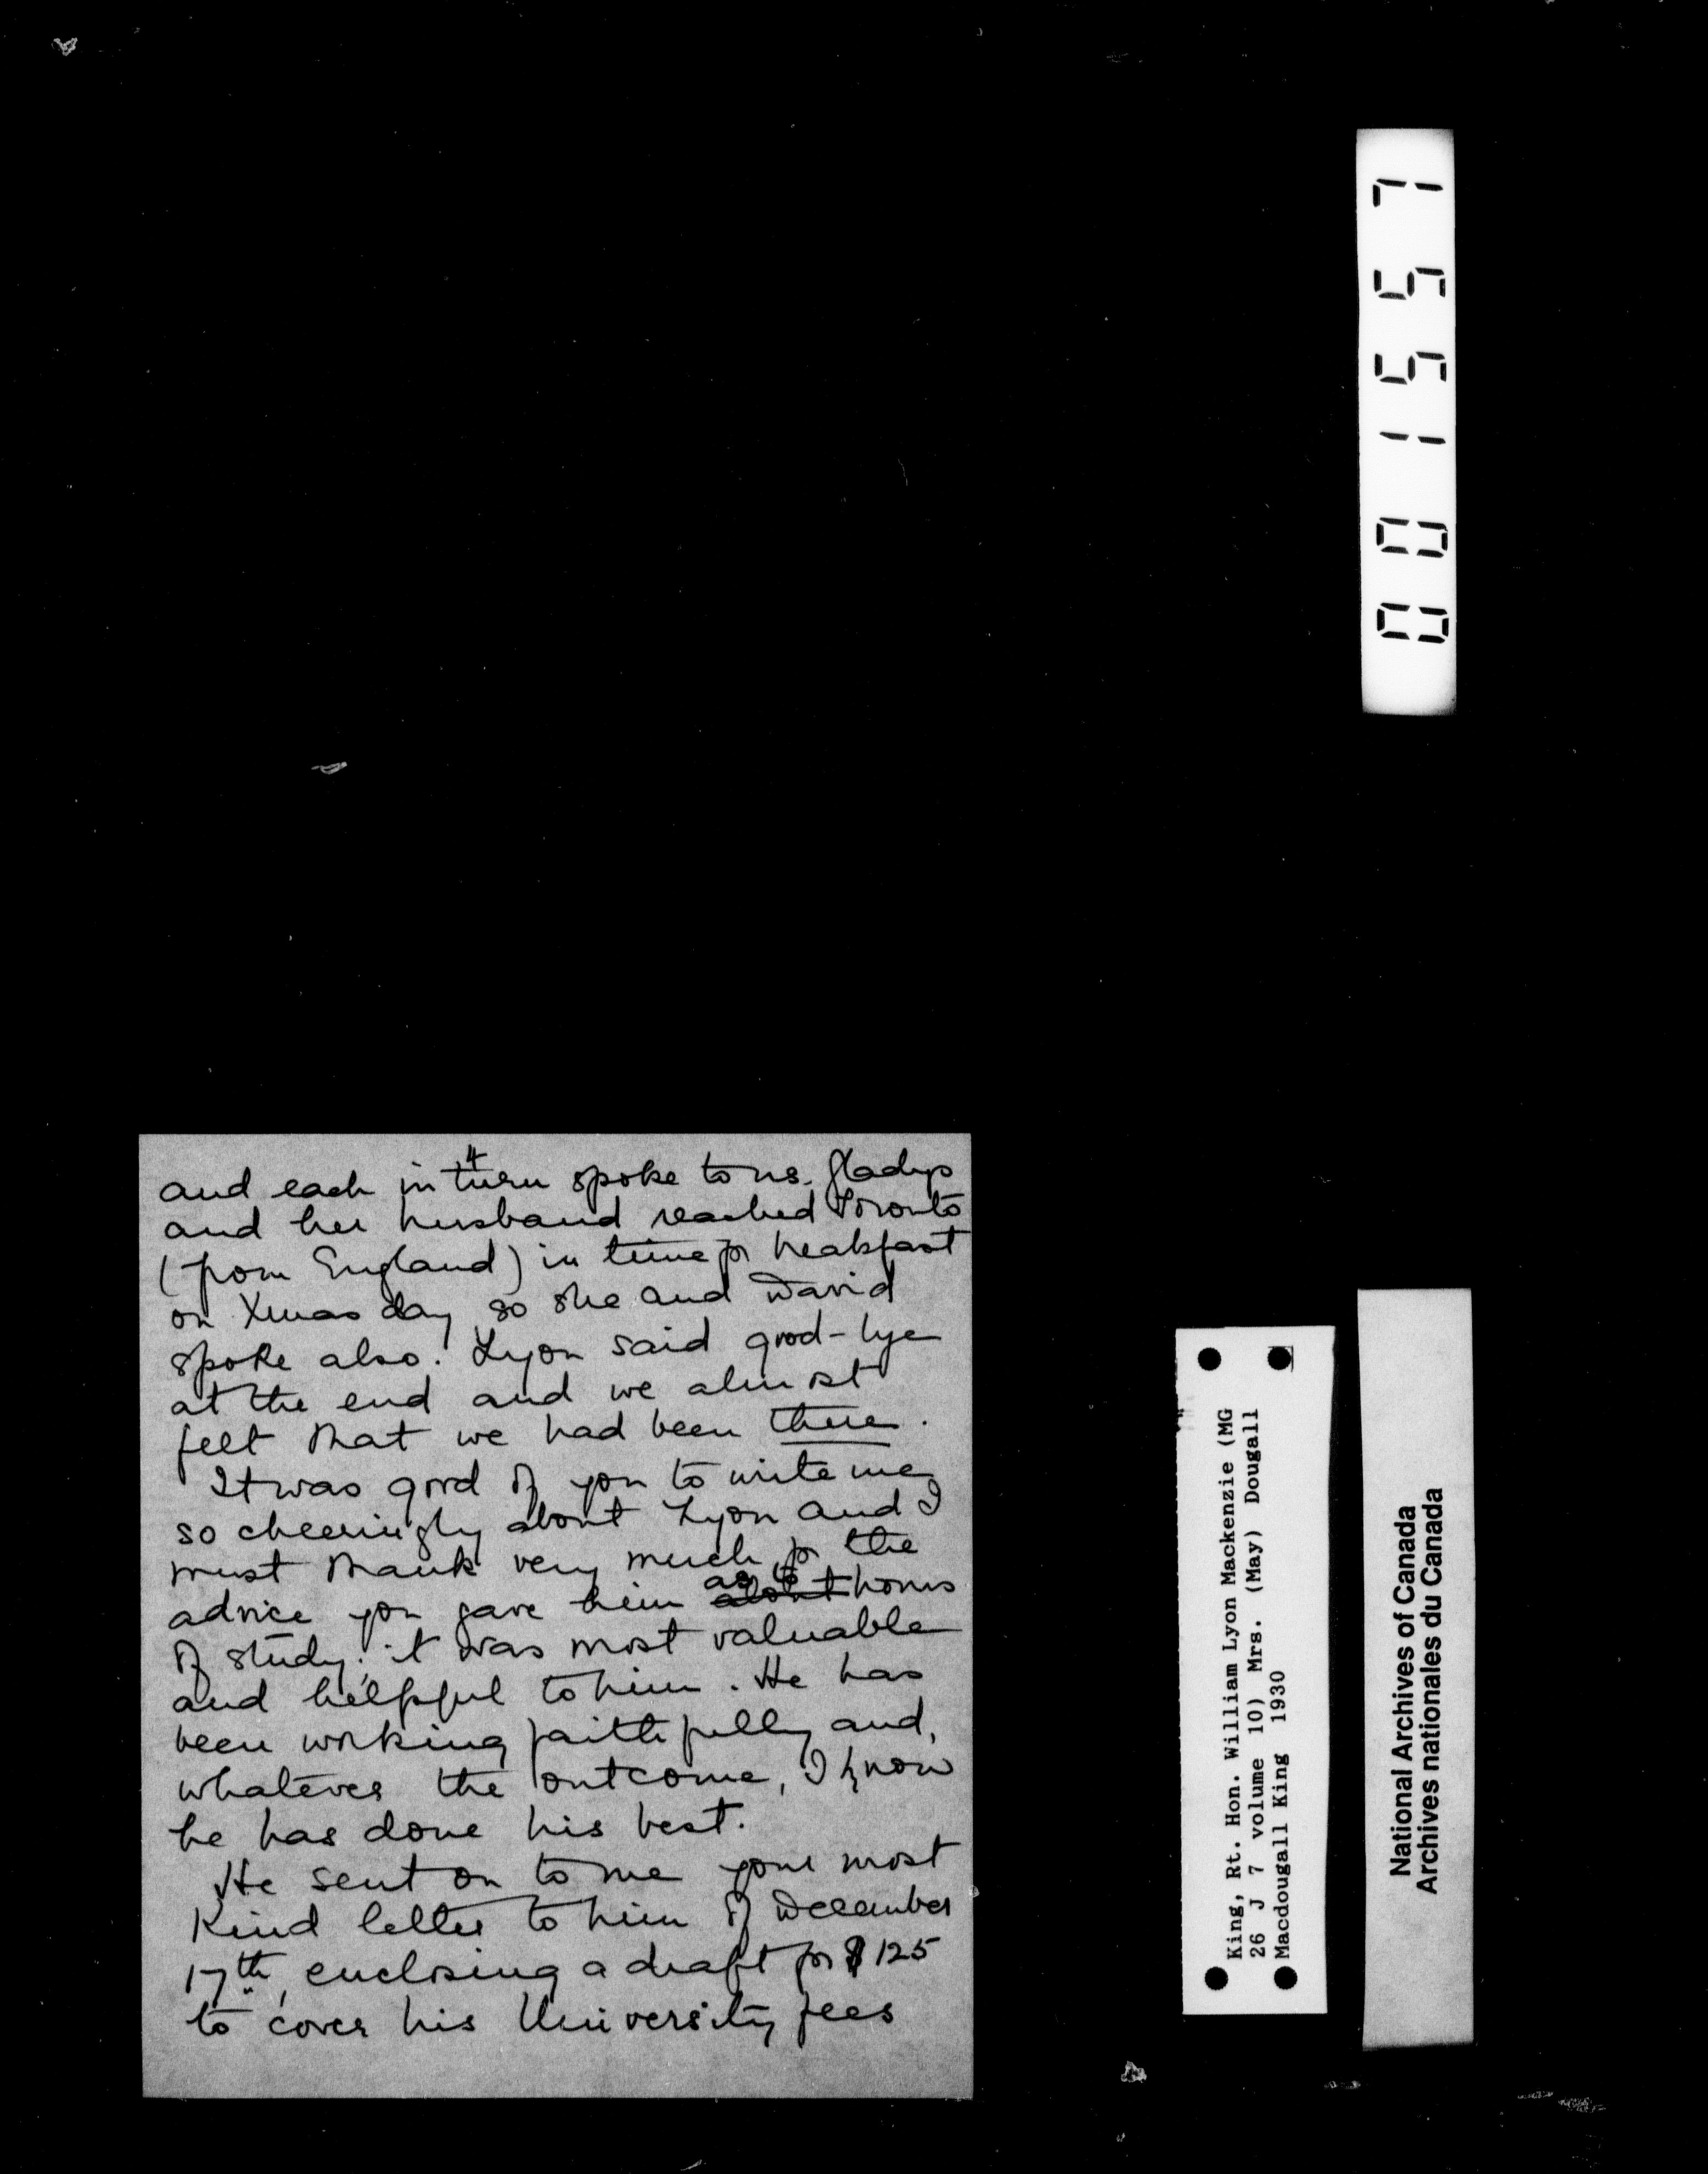 4
and each in turn spoke to us. Gladys
and her husband reached Toronto
(from England) in time for breakfast
on Xmas day so she and David
spoke also. Lyon said good-bye
at the end and we almost
felt that we had been there.
It was good of you to write me
so cheeringly about Lyon and I
must thank very much for the
advice you gave him ~~about~~ as to hours
of study; it was most valuable
and helpful to him. He has
been working faithfully and,
whatever the outcome, I know
he has done his best.
He sent on to me your most
kind letter to him of December
17th, enclosing a draft for $125
to cover his University fees
001557
King, Rt. Hon. William Lyon Mackenzie (MG
26 J 7 volume 10) Mrs. (May) Dougall
Macdougall King 1930
National Archives of Canada
Archives nationales du Canada